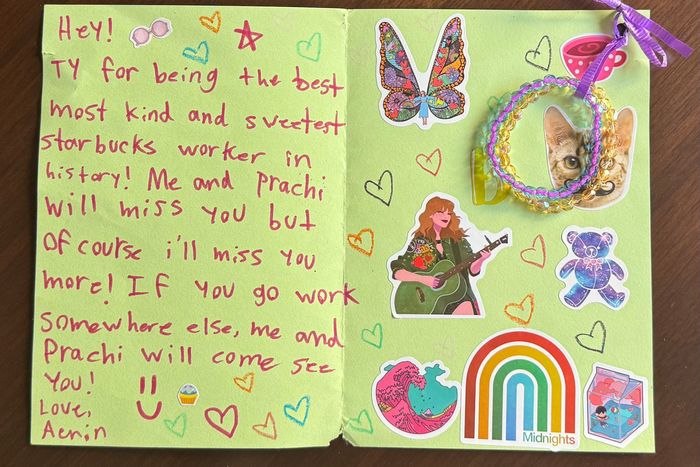 Hey!
TY for being the best
most kind and sweetest
starbucks worker in
history! Me and Prachi
will miss you but
of course i'll miss you
more! If you go work
somewhere else, me and
Prachi will come see
you!
Love,
Aenin
Midnights